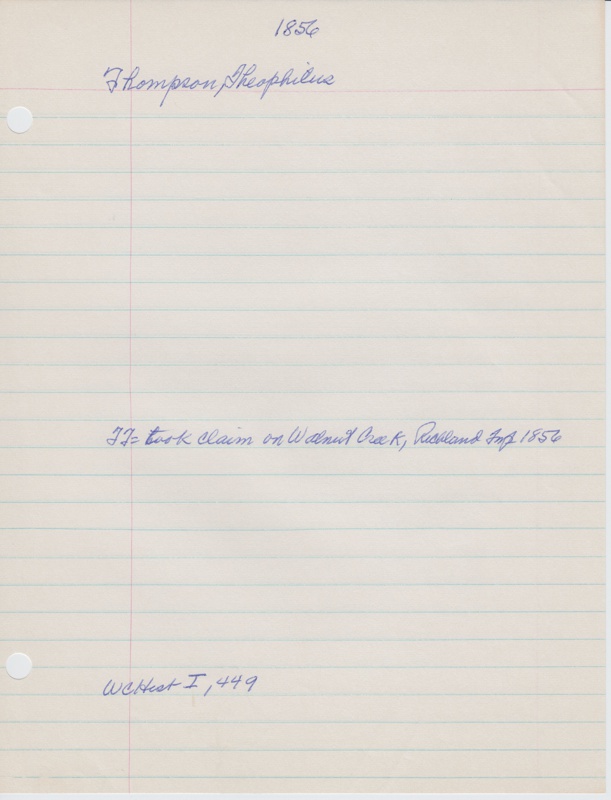 1856
Thompson, Theophilus
TT= took claim on Walnut Creek, Richland Twp 1856
WCHist I, 449